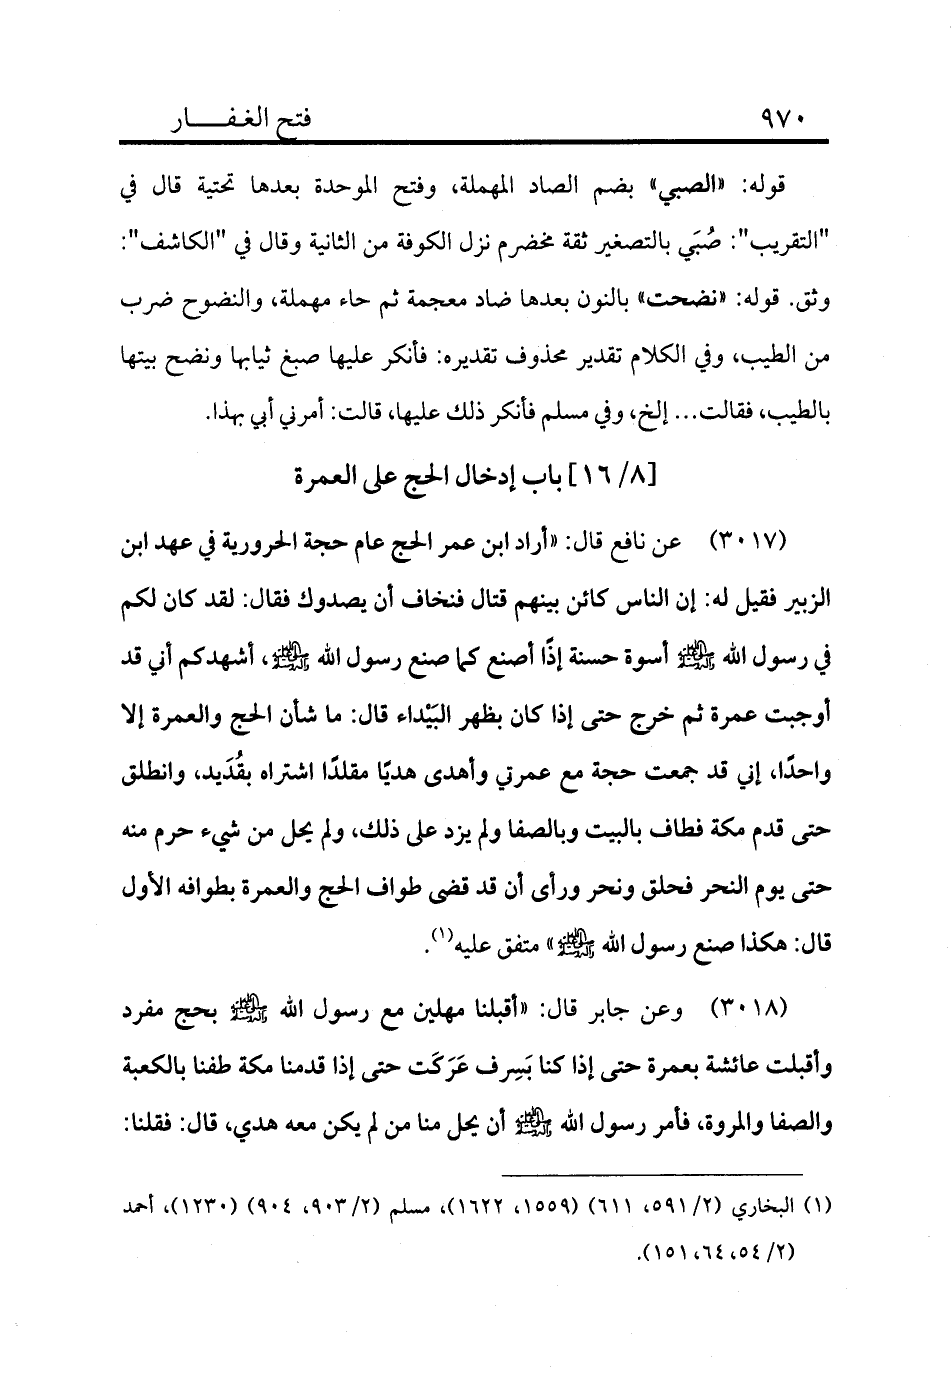 ٩٧٠ فتح الغفـــــار
قوله: «الصبي» بضم الصاد المهملة، وفتح الموحدة بعدها تحتية قال في
"التقريب": صُبَي بالتصغير ثقة مخضرم نزل الكوفة من الثانية وقال في "الكاشف":
وثق. قوله: «نضحت» بالنون بعدها ضاد معجمة ثم حاء مهملة، والنضوح ضرب
من الطيب، وفي الكلام تقدير محذوف تقديره: فأنكر عليها صبغ ثيابها ونضح بيتها
بالطيب، فقالت... إلخ، وفي مسلم فأنكر ذلك عليها، قالت: أمرني أبي بهذا.
[٨/ ١٦] باب إدخال الحج على العمرة
(٣٠١٧) عن نافع قال: «أراد ابن عمر الحج عام حجة الحرورية في عهد ابن
الزبير فقيل له: إن الناس كائن بينهم قتال فنخاف أن يصدوك فقال: لقد كان لكم
في رسول الله ﷺ أسوة حسنة إذًا أصنع كما صنع رسول الله ﷺ، أشهدكم أني قد
أوجبت عمرة ثم خرج حتى إذا كان بظهر البَيْداء قال: ما شأن الحج والعمرة إلا
واحدًا، إني قد جمعت حجة مع عمرتي وأهدى هديًا مقلدًا اشتراه بقُدَيد، وانطلق
حتى قدم مكة فطاف بالبيت وبالصفا ولم يزد على ذلك، ولم يحل من شيء حرم منه
حتى يوم النحر فحلق ونحر ورأى أن قد قضى طواف الحج والعمرة بطوافه الأول
قال: هكذا صنع رسول الله ﷺ» متفق عليه(١).
(٣٠١٨) وعن جابر قال: «أقبلنا مهلين مع رسول الله ﷺ بحج مفرد
وأقبلت عائشة بعمرة حتى إذا كنا بَسِرف عَرَكَت حتى إذا قدمنا مكة طفنا بالكعبة
والصفا والمروة، فأمر رسول الله ﷺ أن يحل منا من لم يكن معه هدي، قال: فقلنا:
(١) البخاري (٢/ ٥٩١، ٦١١) (١٥٥٩، ١٦٢٢)، مسلم (٢/ ٩٠٣، ٩٠٤) (١٢٣٠)، أحمد
(٢/ ٥٤، ٦٤، ١٥١).